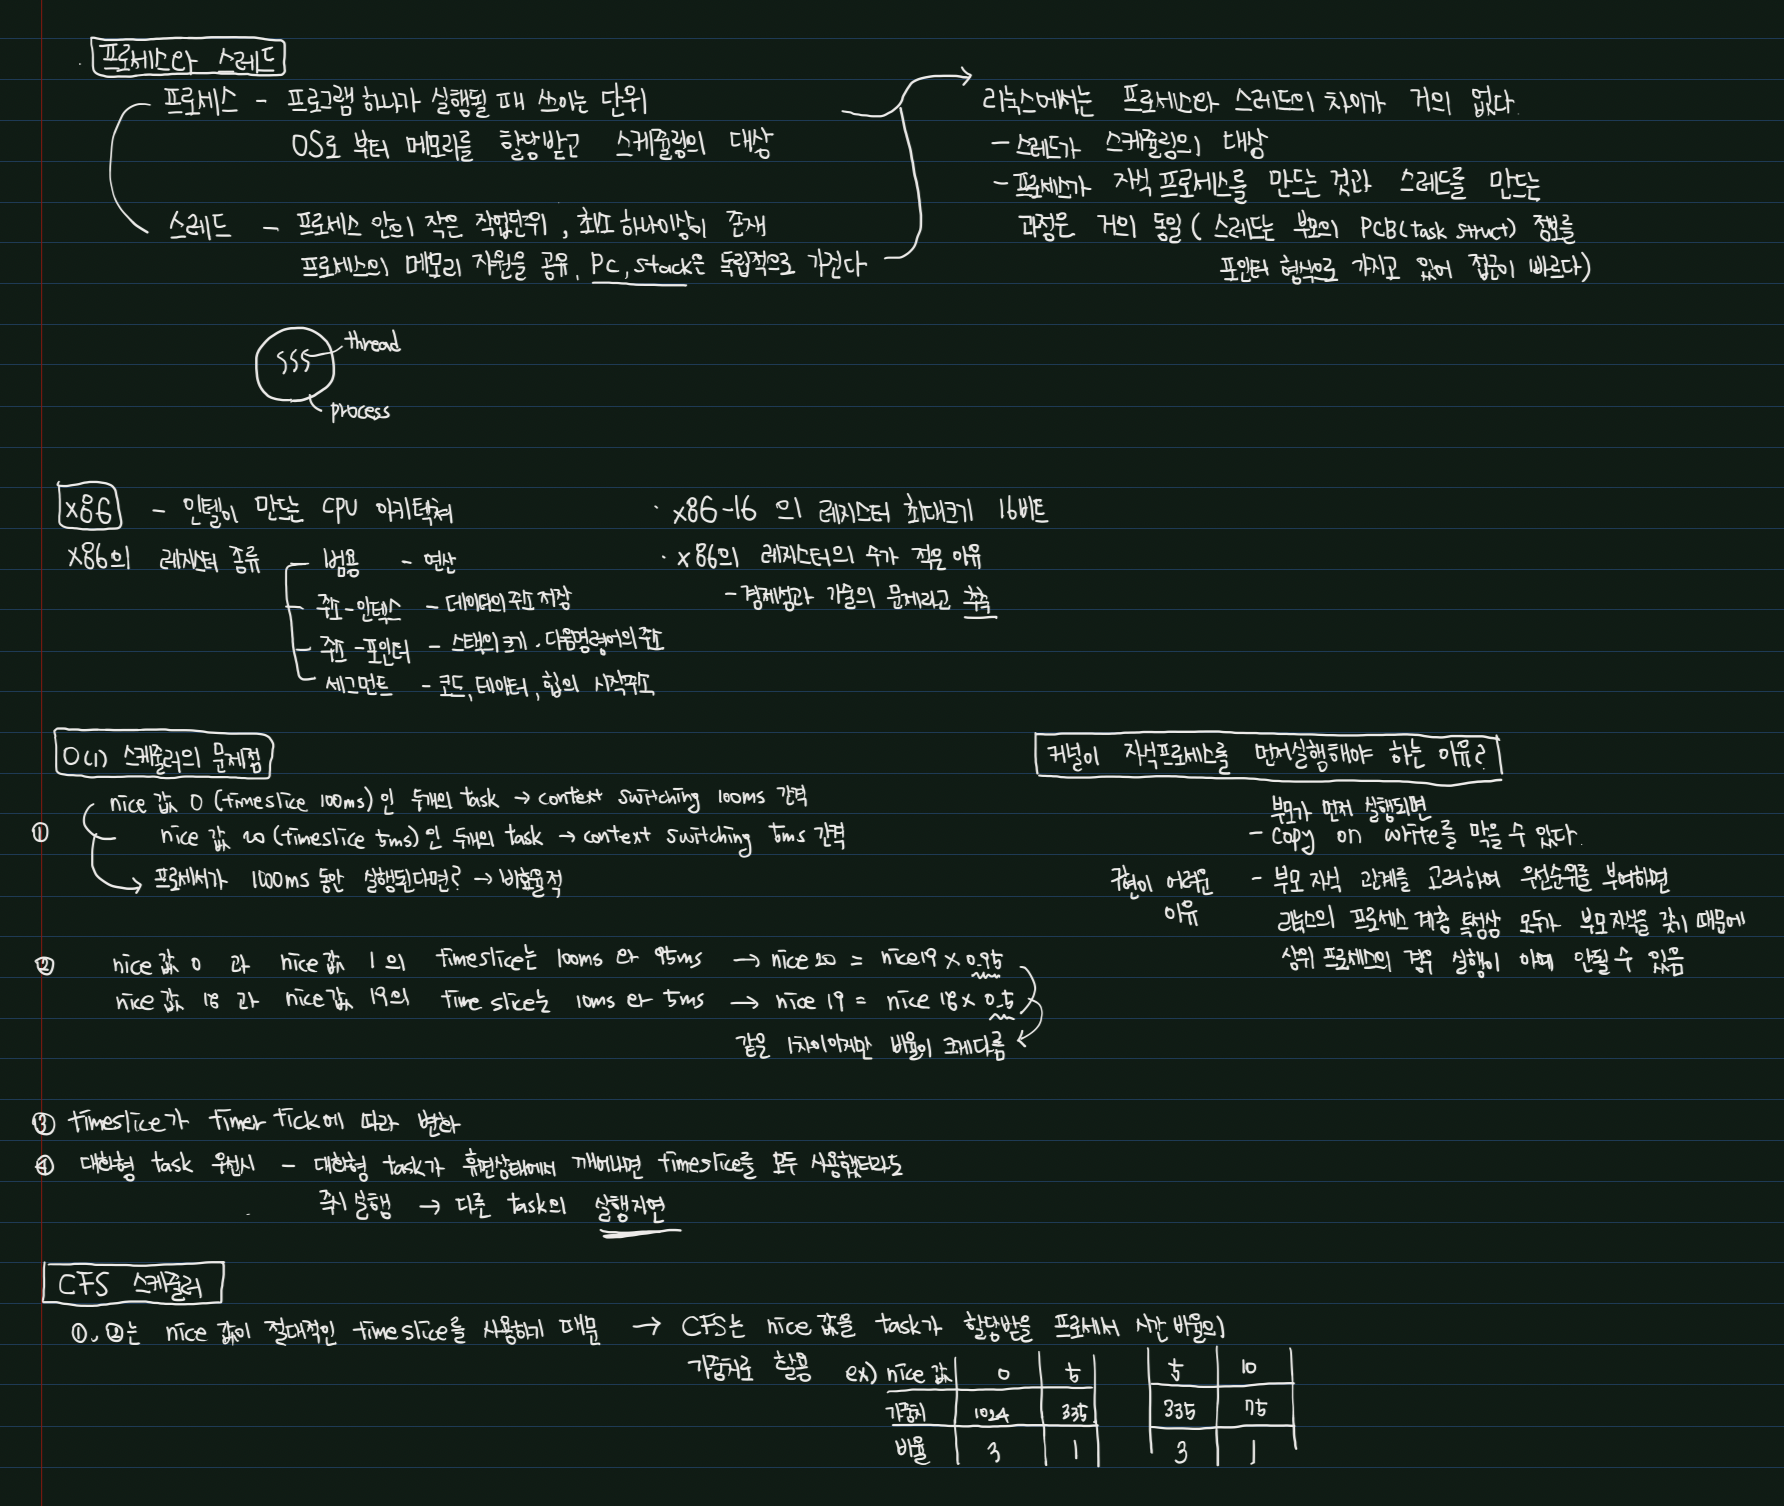 프로세스와 스레드
프로세스 - 프로그램 하나가 실행될 때 쓰이는 단위
OS로 부터 메모리를 할당받고 스케쥴링의 대상
스레드 - 프로세스 안의 작은 작업단위, 최소 하나이상이 존재
프로세스의 메모리 자원을 공유, PC, stack은 독립적으로 가진다
리눅스에서는 프로세스와 스레드의 차이가 거의 없다.
- 스레드가 스케쥴링의 대상
- 프로세스가 자식 프로세스를 만드는 것과 스레드를 만드는
과정은 거의 동일 (스레드는 부모의 PCB(task struct) 정보를
포인터 형식으로 가지고 있어 접근이 빠르다)
thread
process
x86 - 인텔이 만드는 CPU 아키텍쳐
x86의 레지스터 종류
범용 - 연산
주소-인덱스 - 데이터의 주소 저장
주소-포인터 - 스택의 크기 · 다음명령어의 주소
세그먼트 - 코드, 데이터, 힙의 시작주소
· x86-16 의 레지스터 최대크기 16비트
· x86의 레지스터의 수가 적은 이유
- 경제성과 기술의 문제라고 추측
O(1) 스케쥴러의 문제점
① nice 값 0 (timeslice 100ms) 인 두개의 task → context switching 100ms 간격
nice 값 20 (timeslice 5ms) 인 두개의 task → context switching 5ms 간격
→ 프로세서가 1000ms 동안 실행된다면? → 비효율적
② nice 값 0 과 nice 값 1 의 timeslice는 100ms 와 95ms → nice 20 = nice 19 × 0.95
nice 값 18 과 nice 값 19의 time slice는 10ms 와 5ms → nice 19 = nice 18 × 0.5
같은 1차이이지만 비율이 크게다름
③ timeslice가 timer tick에 따라 변화
④ 대화형 task 우선시 - 대화형 task가 휴면상태에서 깨어나면 timeslice를 모두 사용했더라도
즉시 실행 → 다른 task의 실행지연
커널이 자식프로세스를 먼저실행해야 하는 이유?
부모가 먼저 실행되면
- Copy on write를 막을 수 있다.
구현이 어려운
이유
- 부모 자식 관계를 고려하여 우선순위를 부여하면
리눅스의 프로세스 계층 특성상 모두가 부모자식을 갖기 때문에
상위 프로세스의 경우 실행이 아예 안될 수 있음
CFS 스케쥴러
①, ②는 nice 값이 절대적인 timeslice를 사용하기 때문 → CFS는 nice 값을 task가 할당받을 프로세서 시간 비율의
가중치로 활용
ex) nice 값 0 5 5 10
가중치 1024 335 335 75
비율 3 1 3 1